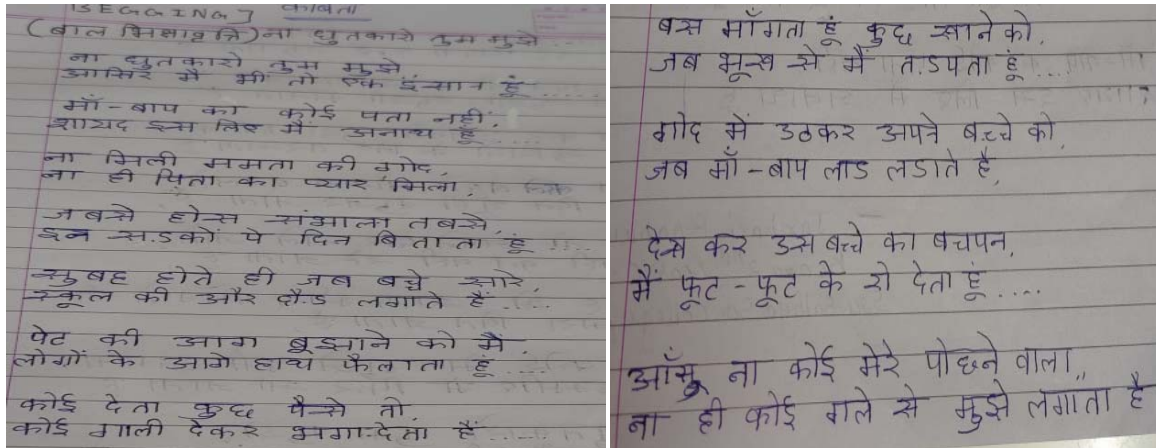 BEGGING] कविता
(बाल भिक्षावृति) ना धुतकारो तुम मुझे ...
ना धुतकारो तुम मुझे
आखिर मैं भी तो एक इंसान हूं .....
माँ-बाप का कोई पता नहीं,
शायद इस लिए मैं अनाथ हूं ....
ना मिली ममता की गोद,
ना ही पिता का प्यार मिला,
जबसे होस संभाला तबसे,
इन स.डकों पे दिन बिताता हूं ....
सुबह होते ही जब बच्चे सारे,
स्कूल की और दौड लगाते हैं ....
पेट की आग बूझाने को मैं,
लोगों के आगे हाथ फैलाता हूं ....
कोई देता कुछ पैसे तो,
कोई गाली देकर भगा देता हैं ......
बस माँगता हूं कुछ खाने को,
जब भूख से मैं त.डपता हूं ....
गोद में उठकर अपने बच्चे को,
जब माँ-बाप लाड लडाते है,
देख कर उस बच्चे का बचपन,
मैं फूट-फूट के रो देता हूं ....
आँसू ना कोई मेरे पोछने वाला,,
ना ही कोई गले से मुझे लगाता है